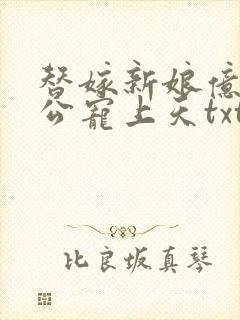 替嫁新娘億
公寵上天txt
比良坂真琴